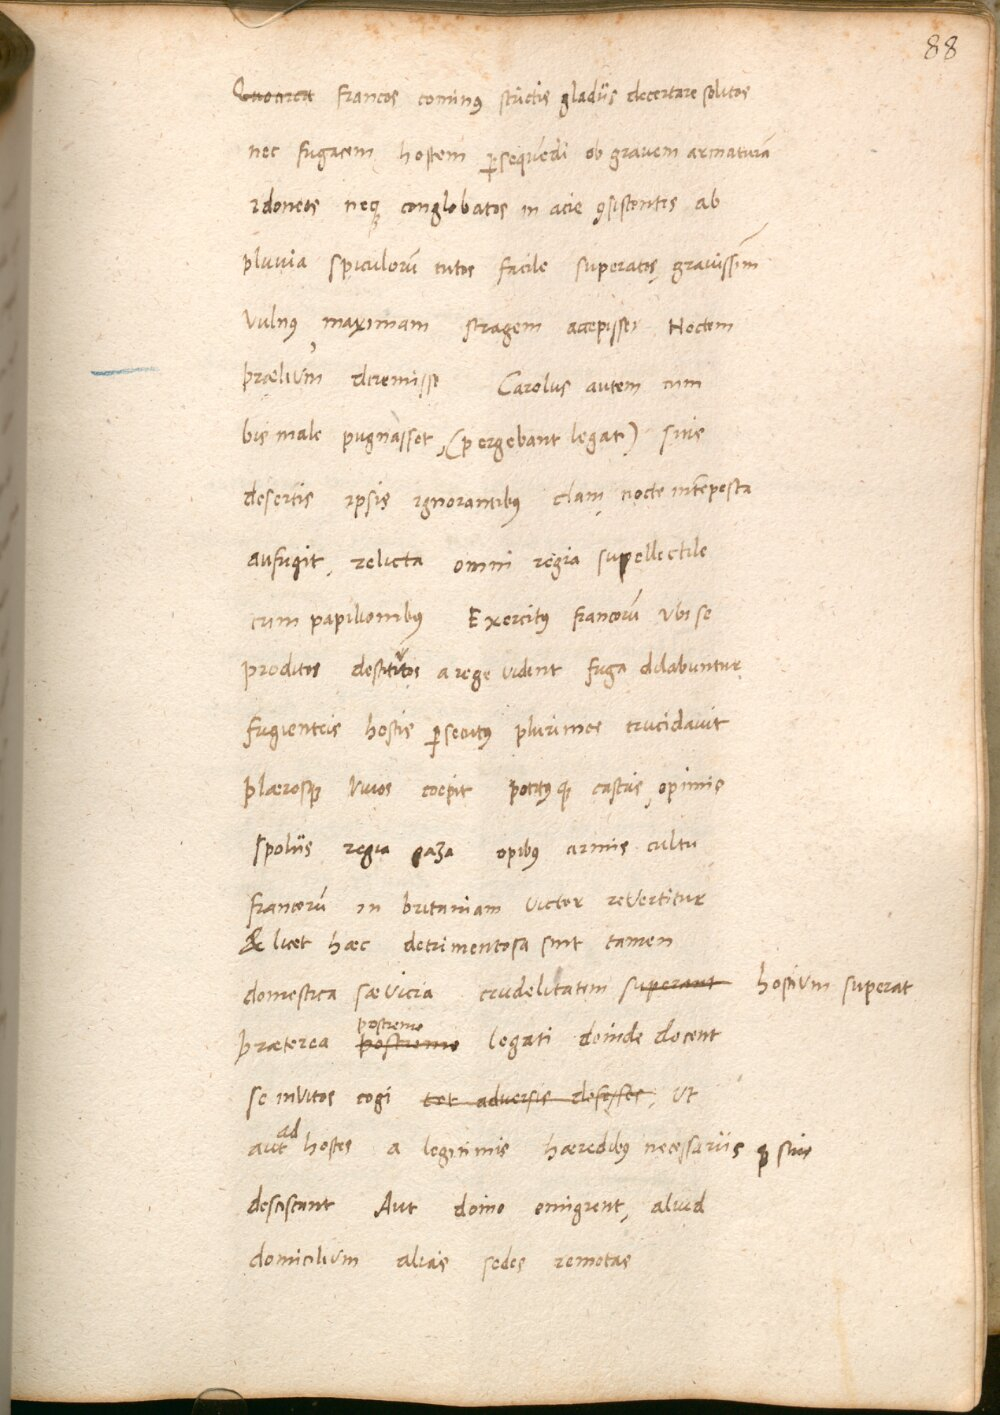 88
Quocirca Francos cominꝰ strictis gladiis decertare solitos
nec fugacem hostem ꝑsequēdi ob grauem armaturā
idoneos neqꝫ conglobatos in acie ꝯsistentis ab
pluuia spiculorū tutos facile superatos grauissim
vulnꝰ maximam stragem accepisse, Noctem
prælium diremisse Carolus autem cum
bis male pugnasset, (pergebant legati) suis
desertis ipsis ignorantibꝰ clam nocte intēpesta
aufugit, relicta omni regia supellectile
cum papilionibꝰ Exercitꝰ francorū vbi se
proditos destitutos a rege vident fuga dilabuntur
fugienteis hostis ꝑsecutꝰ plurimos trucidauit
plærosqꝫ viuos coepit potitꝰqꝫ castris, opimis
spoliis regia gaza opibꝰ armis cultu
francorū in britaniam victor revertitur
& licet hæc detrimentosa sint tamen
domestica sæuicia crudelitatem superant hostium superat
præterea postremo postremo legati deinde docent
se invitos cogi tot adversis defessos, vt
aut ad hostes a legitimis hæredibꝰ necessariis qꝫ suis
desciscant Aut domo emigrent, aliud
domicilium alias sedes remotas